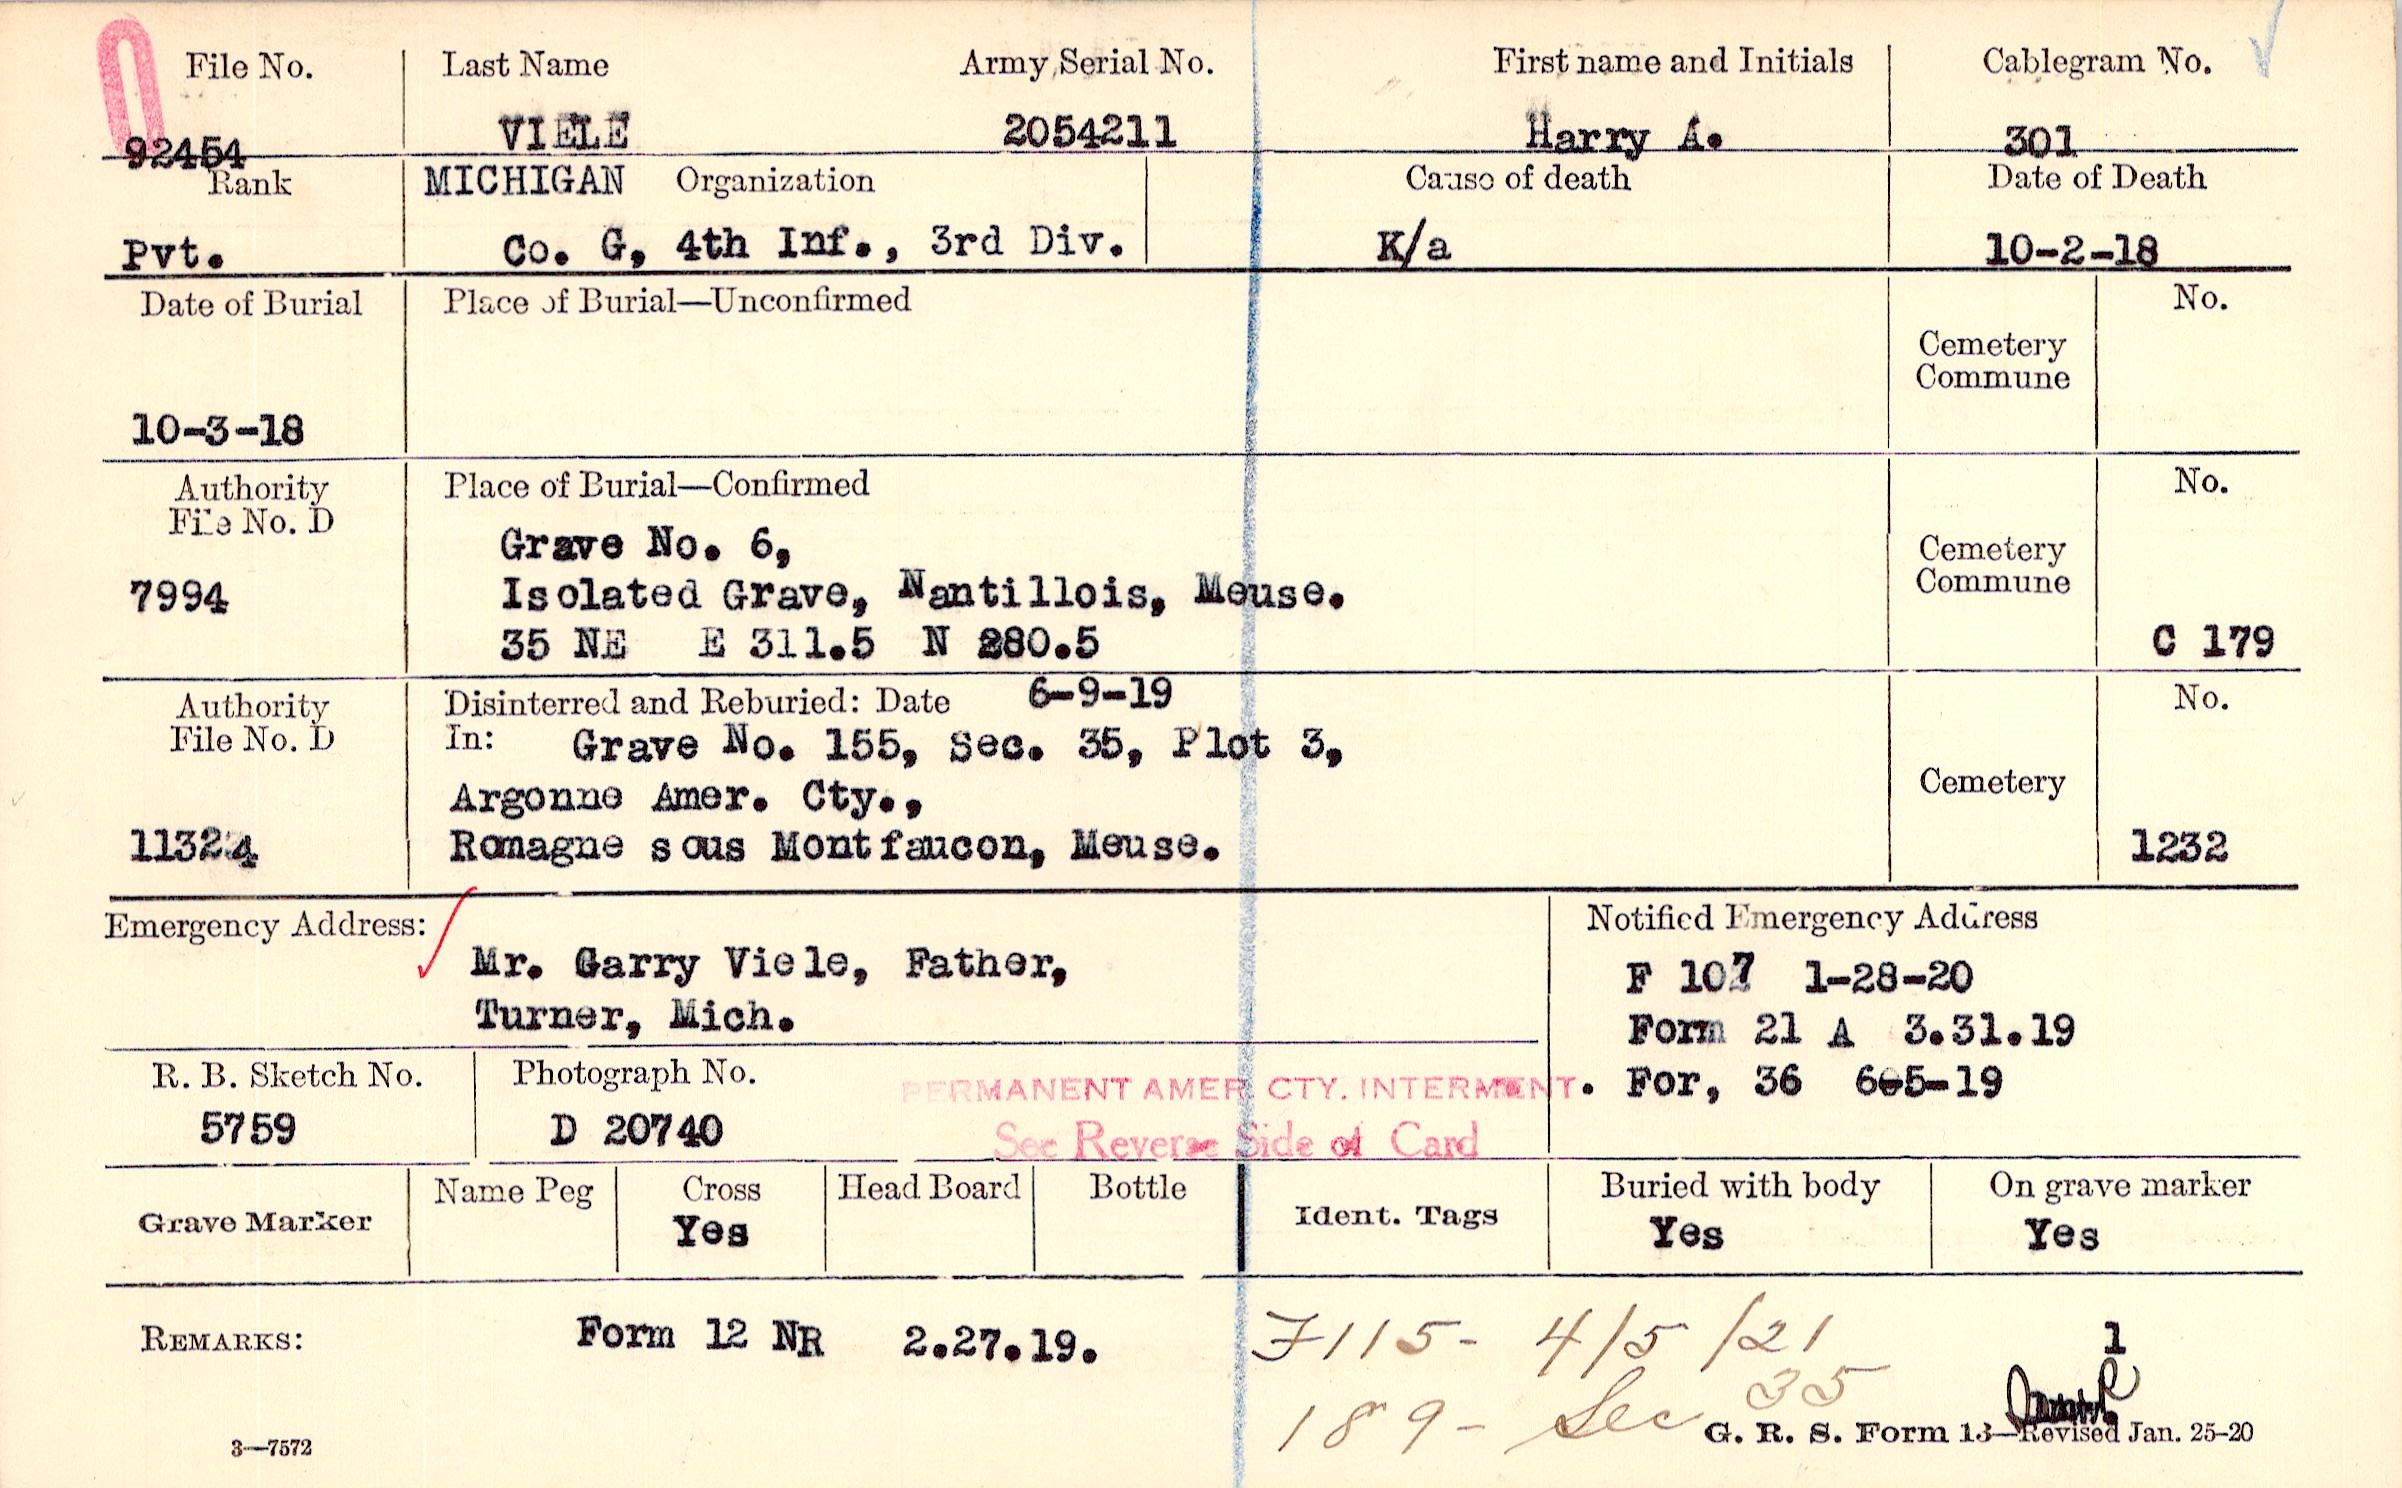 File No. Last Name Army Serial No. First name and Initials Cablegram No.
92454 VIELE 2054211 Harry A. 301
Rank MICHIGAN Organization Cause of death Date of Death
Pvt. Co. G, 4th Inf., 3rd Div. K/a 10-2-18
Date of Burial Place of Burial—Unconfirmed No.
Cemetery
Commune
10-3-18
Authority Place of Burial—Confirmed No.
File No. D
Grave No. 6,
Cemetery
7994 Isolated Grave, Nantillois, Meuse. Commune
35 NE E 311.5 N 280.5 C 179
Authority Disinterred and Reburied: Date 6-9-19 No.
File No. D In: Grave No. 155, Sec. 35, Plot 3,
Argonne Amer. Cty., Cemetery
11324 Romagne sous Montfaucon, Meuse. 1232
Emergency Address: Notified Emergency Address
Mr. Garry Viele, Father, F 107 1-28-20
Turner, Mich. Form 21 A 3.31.19
R. B. Sketch No. Photograph No. PERMANENT AMER CTY. INTERMENT. For, 36 6-5-19
5759 D 20740 See Reverse Side of Card
Name Peg Cross Head Board Bottle Buried with body On grave marker
Grave Marker Yes Ident. Tags Yes Yes
REMARKS: Form 12 NR 2.27.19. F115- 4/5/21 1
35
189- Sec
3—7572 G. R. S. Form 13—Revised Jan. 25-20